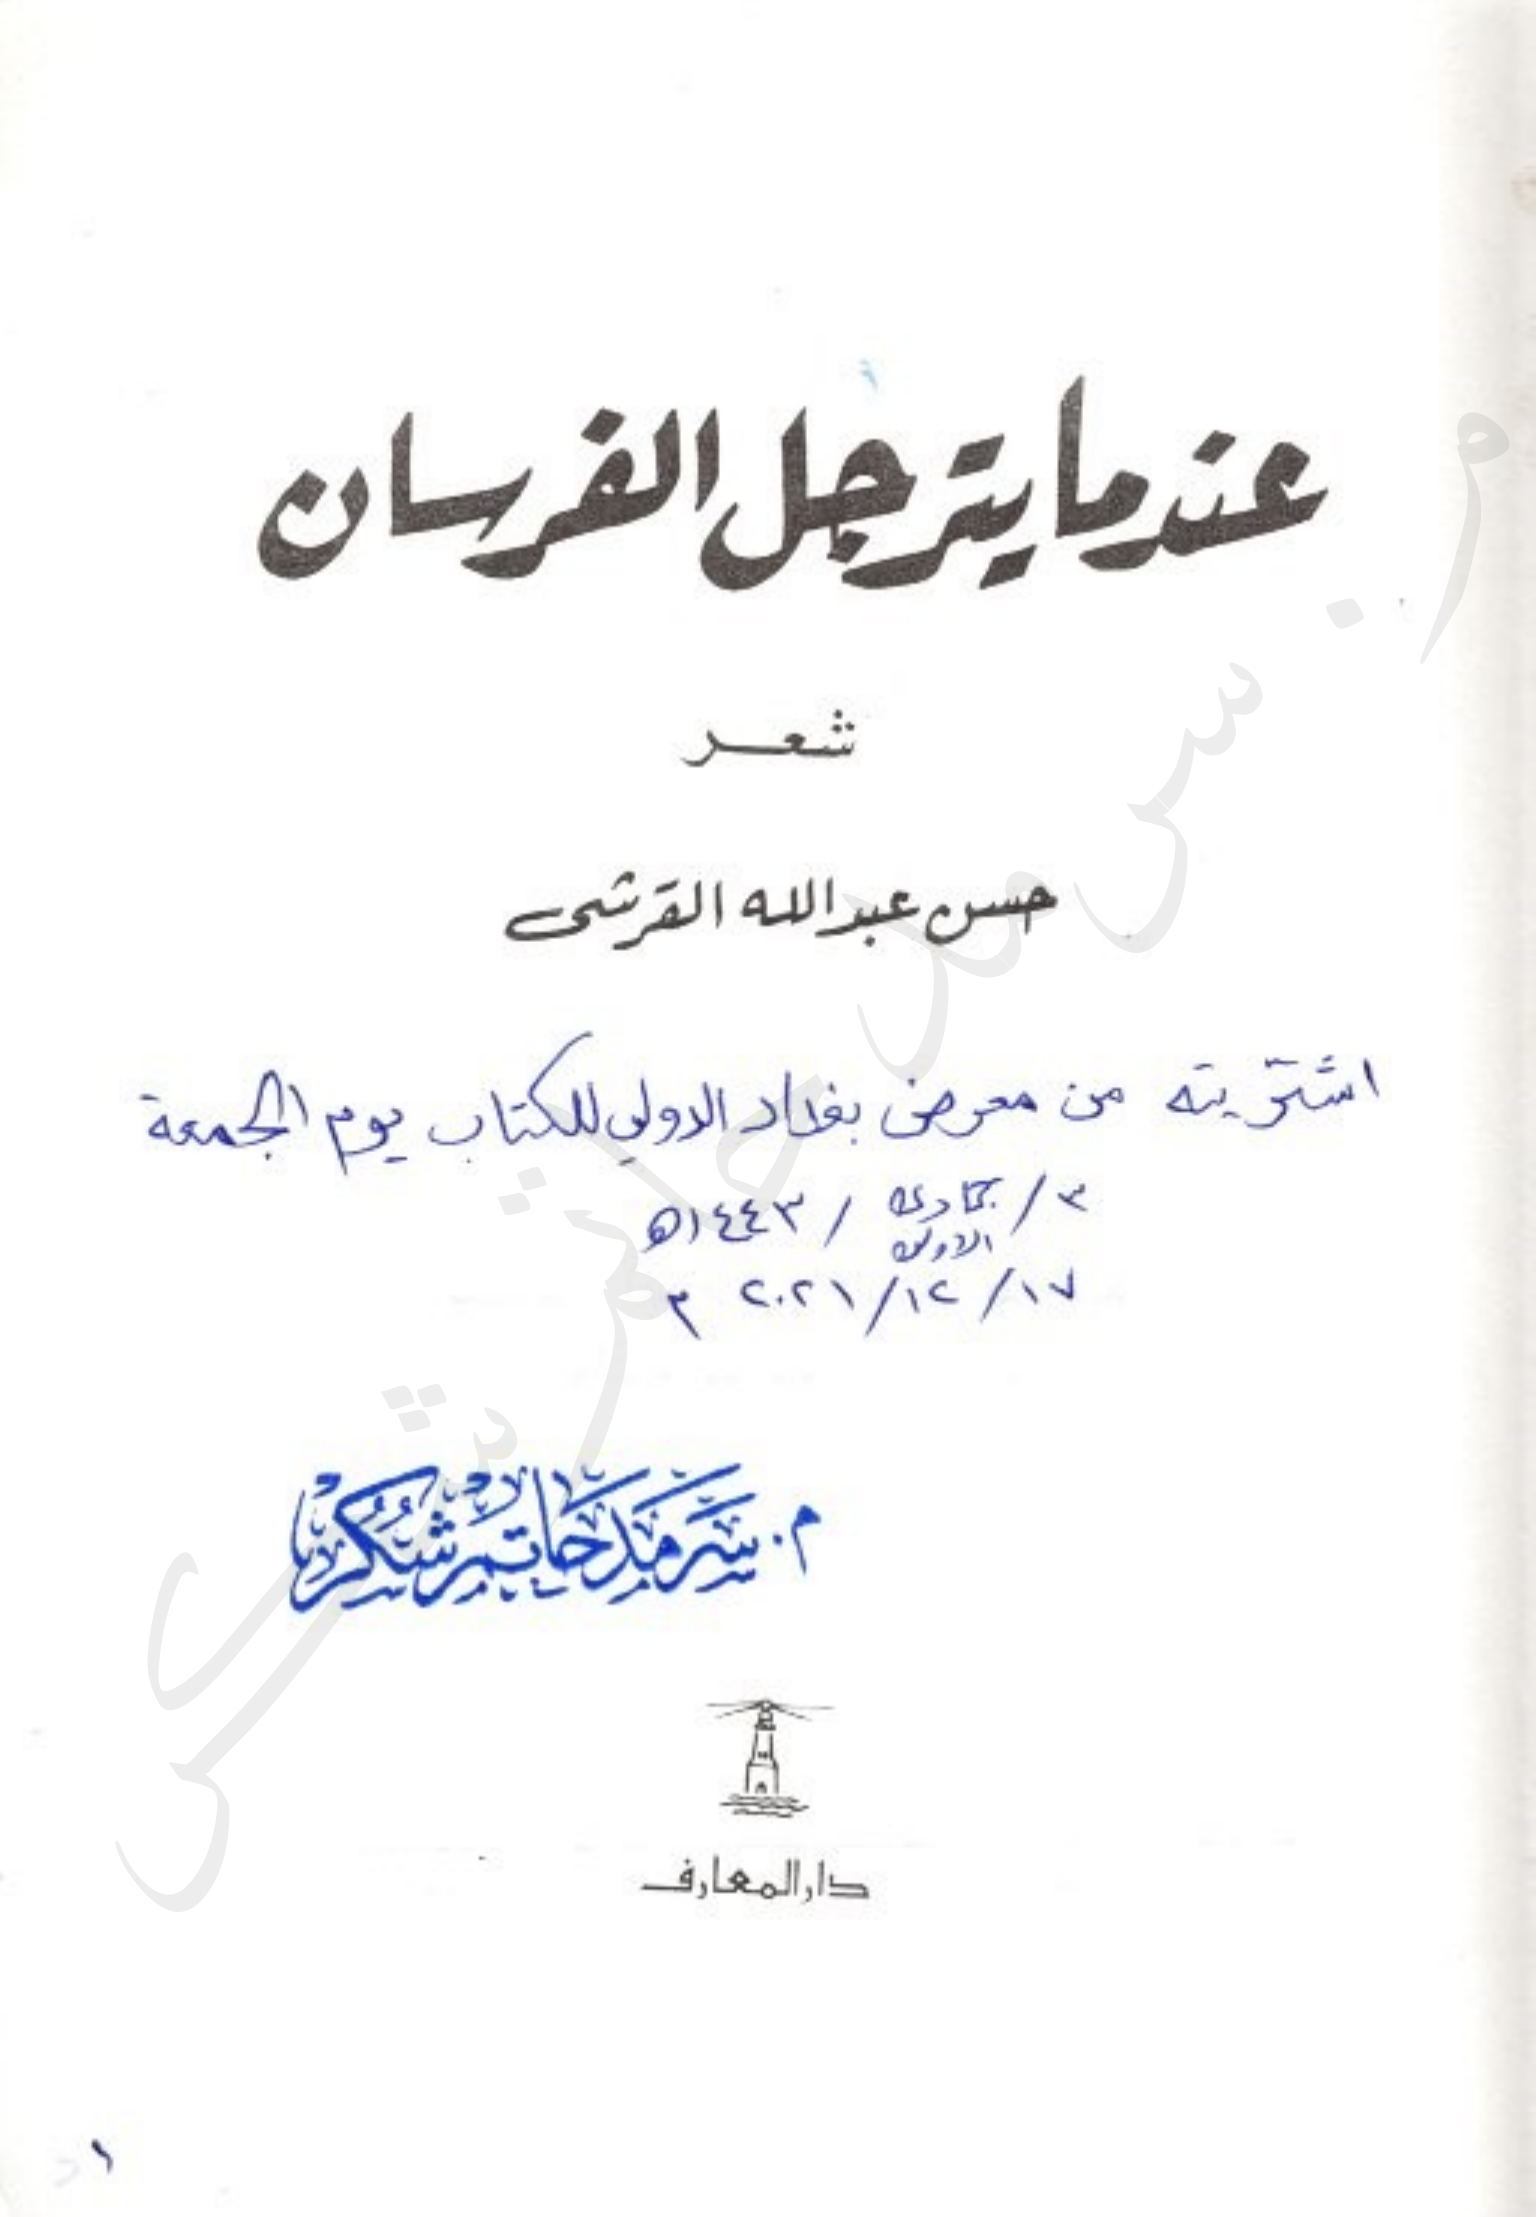 عندما يترجل الفرسان
شعر
حسن عبد الله القرشى
اشتريته من معرض بغداد الدولي للكتاب يوم الجمعة
٣ / جمادى الاولى / ١٤٤٣ه
١٧ / ١٢ / ٢٠٢١ م
م. سَرمَد حَاتِم شُكر
دار المعارف
١
م. سرمد حاتم شكر